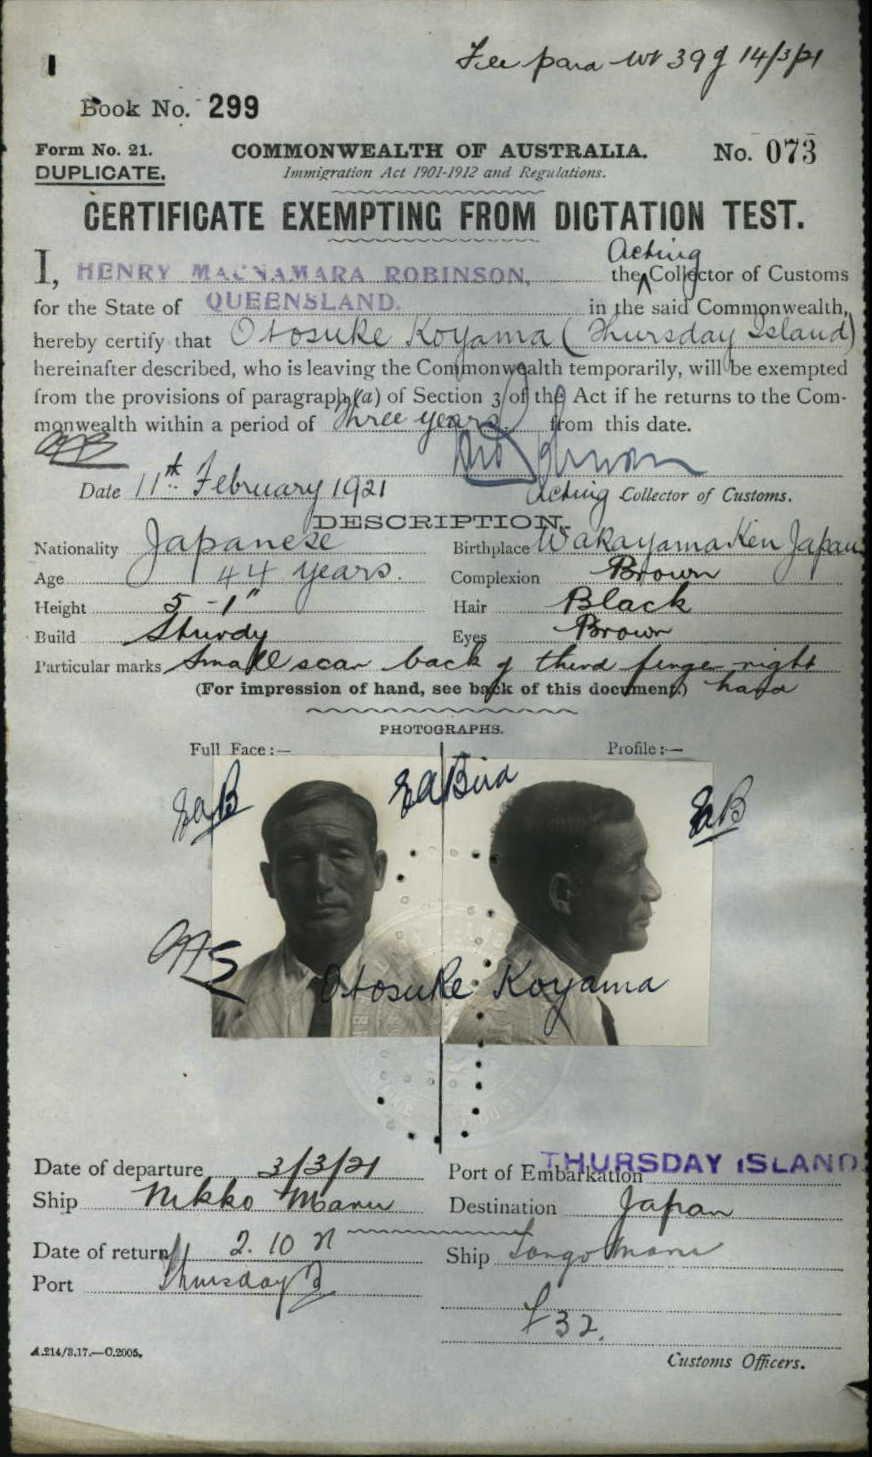 Fee para 39 14/3/21
Book No. 299
Form No. 21. COMMONWEALTH OF AUSTRALIA. No. 073
DUPLICATE. Immigration Act 1901-1912 and Regulations.
CERTIFICATE EXEMPTING FROM DICTATION TEST.
Acting
I, HENRY MACNAMARA ROBINSON, the Collector of Customs
for the State of QUEENSLAND. in the said Commonwealth,
hereby certify that Otosuke Koyama (Thursday Island)
hereinafter described, who is leaving the Commonwealth temporarily, will be exempted
from the provisions of paragraph (a) of Section 3 of the Act if he returns to the Com-
monwealth within a period of Three years from this date.
Date 11th February 1921 Acting Collector of Customs.
DESCRIPTION.
Nationality Japanese Birthplace Wakayama Ken Japan
Age 44 years. Complexion Brown
Height 5-1" Hair Black
Build Sturdy Eyes Brown
Particular marks Small scar back of third finger right
(For impression of hand, see back of this document.) hand
PHOTOGRAPHS.
Full Face:— Profile:—
EaB EaBird EaB
Otosuke Koyama
Date of departure 3/3/21 Port of Embarkation THURSDAY ISLAND
Ship Nikko Maru Destination Japan
Date of return 2.10.21 Ship Tango Maru
Port Thursday I
£32.
A.214/3.17.—C.2005. Customs Officers.